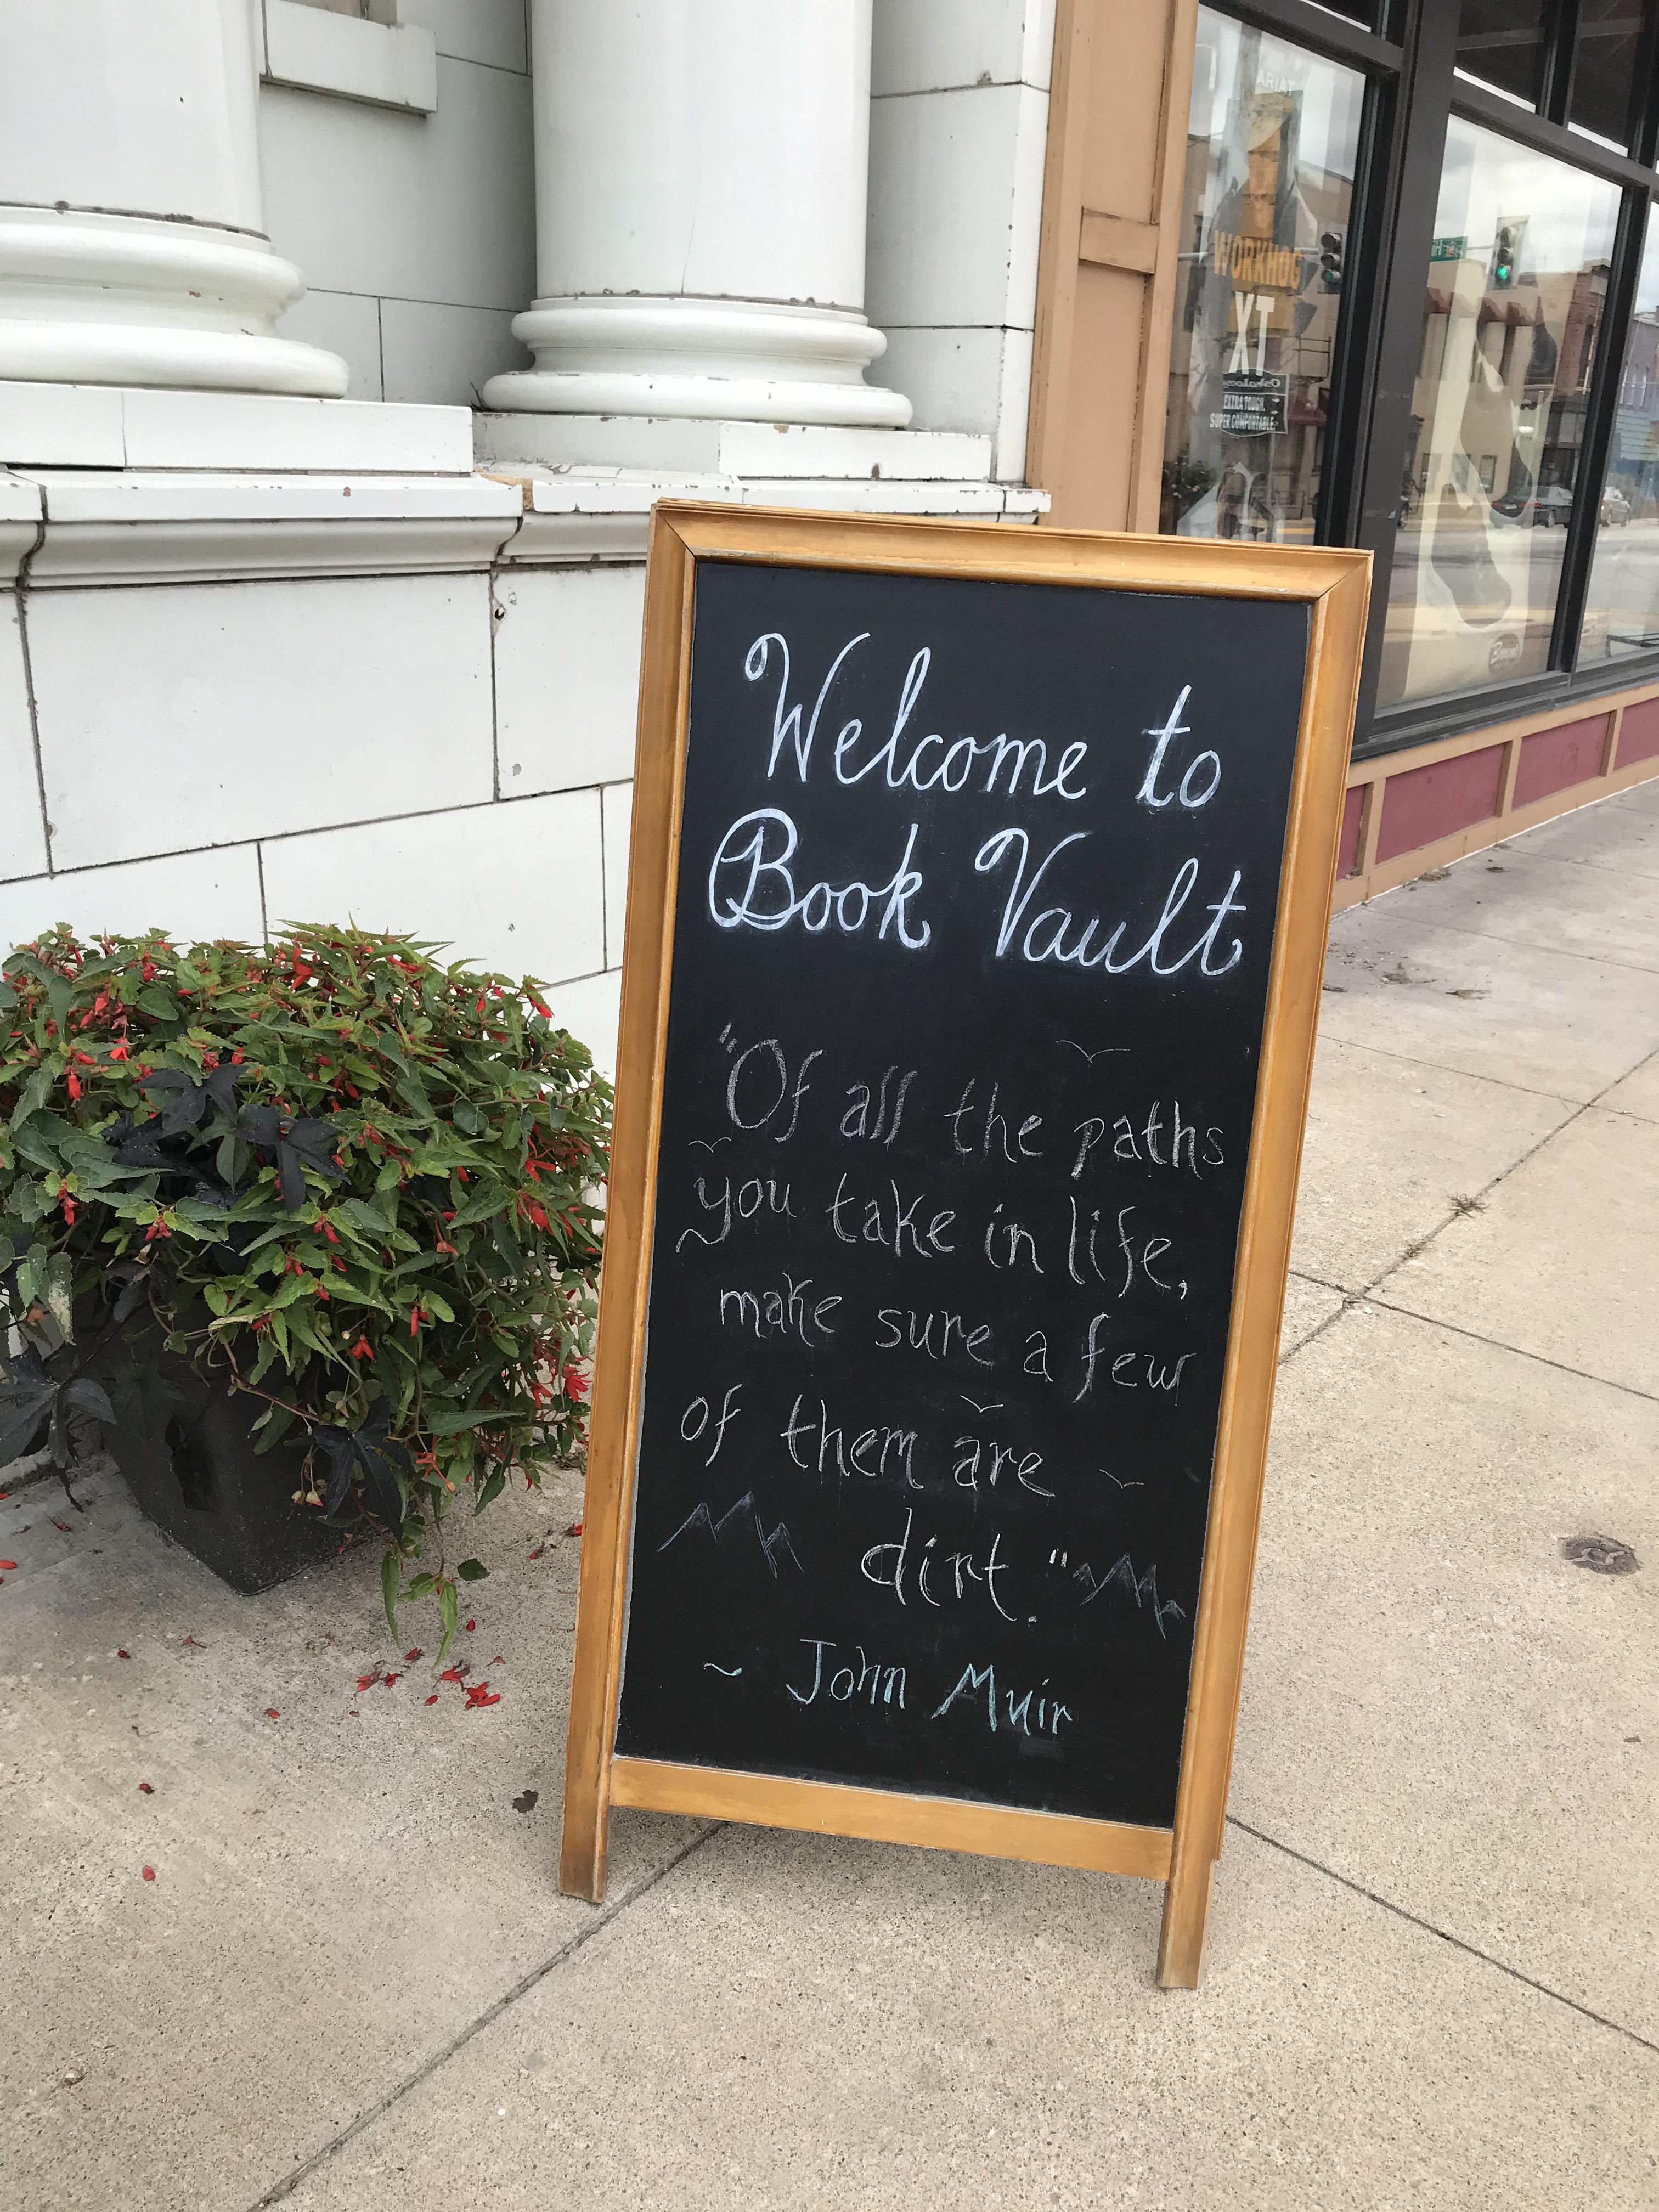 Welcome to
Book Vault
"Of all the paths
you take in life,
make sure a few
of them are
dirt."
~ John Muir
WORKHOG
XT
Oskaloosa
EXTRA TOUGH.
SUPER COMFORTABLE.